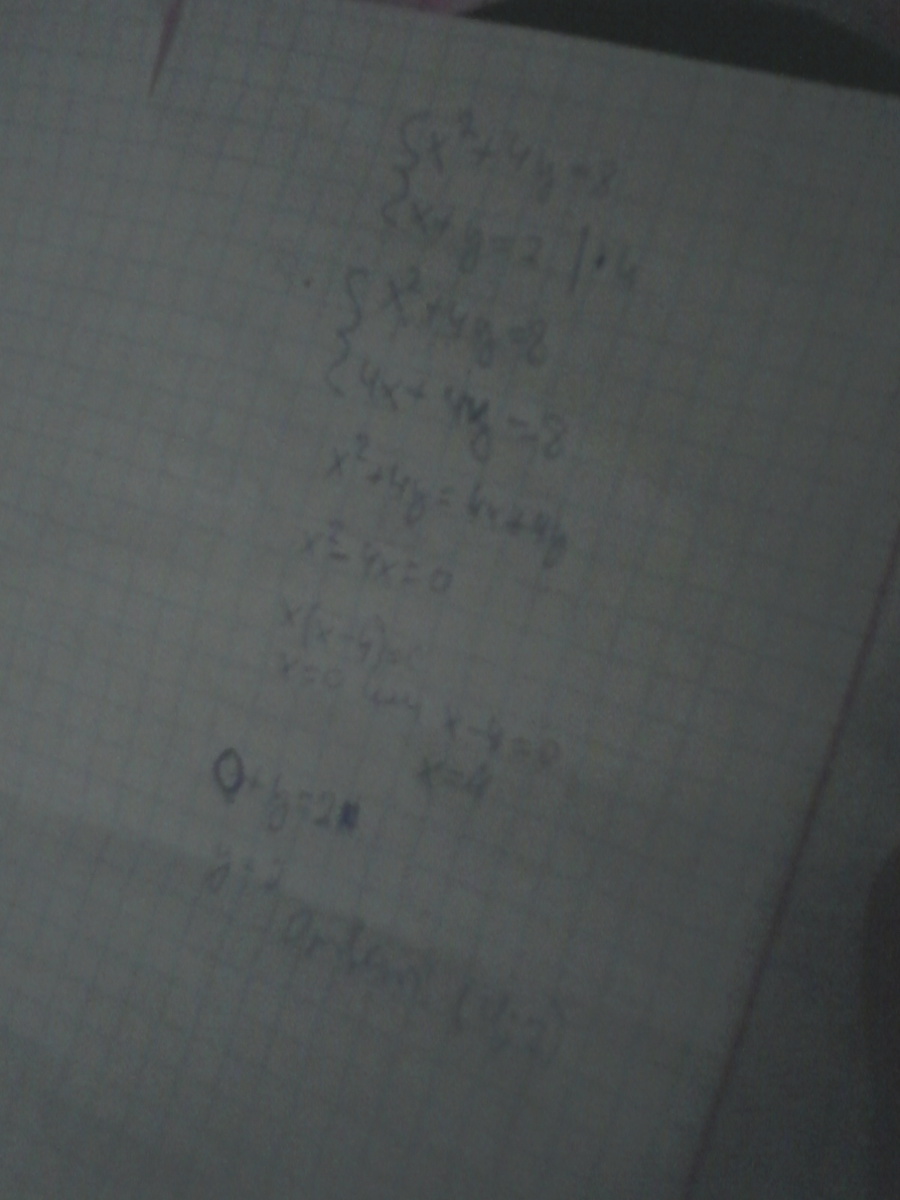 {x²+4y=8
{x+y=2 |·4
{x²+4y=8
{4x+4y=8
x²+4y=4x+4y
x²-4x=0
x(x-4)=0
x=0 или x-4=0
x=4
0+y=2
y=2
Ответ: